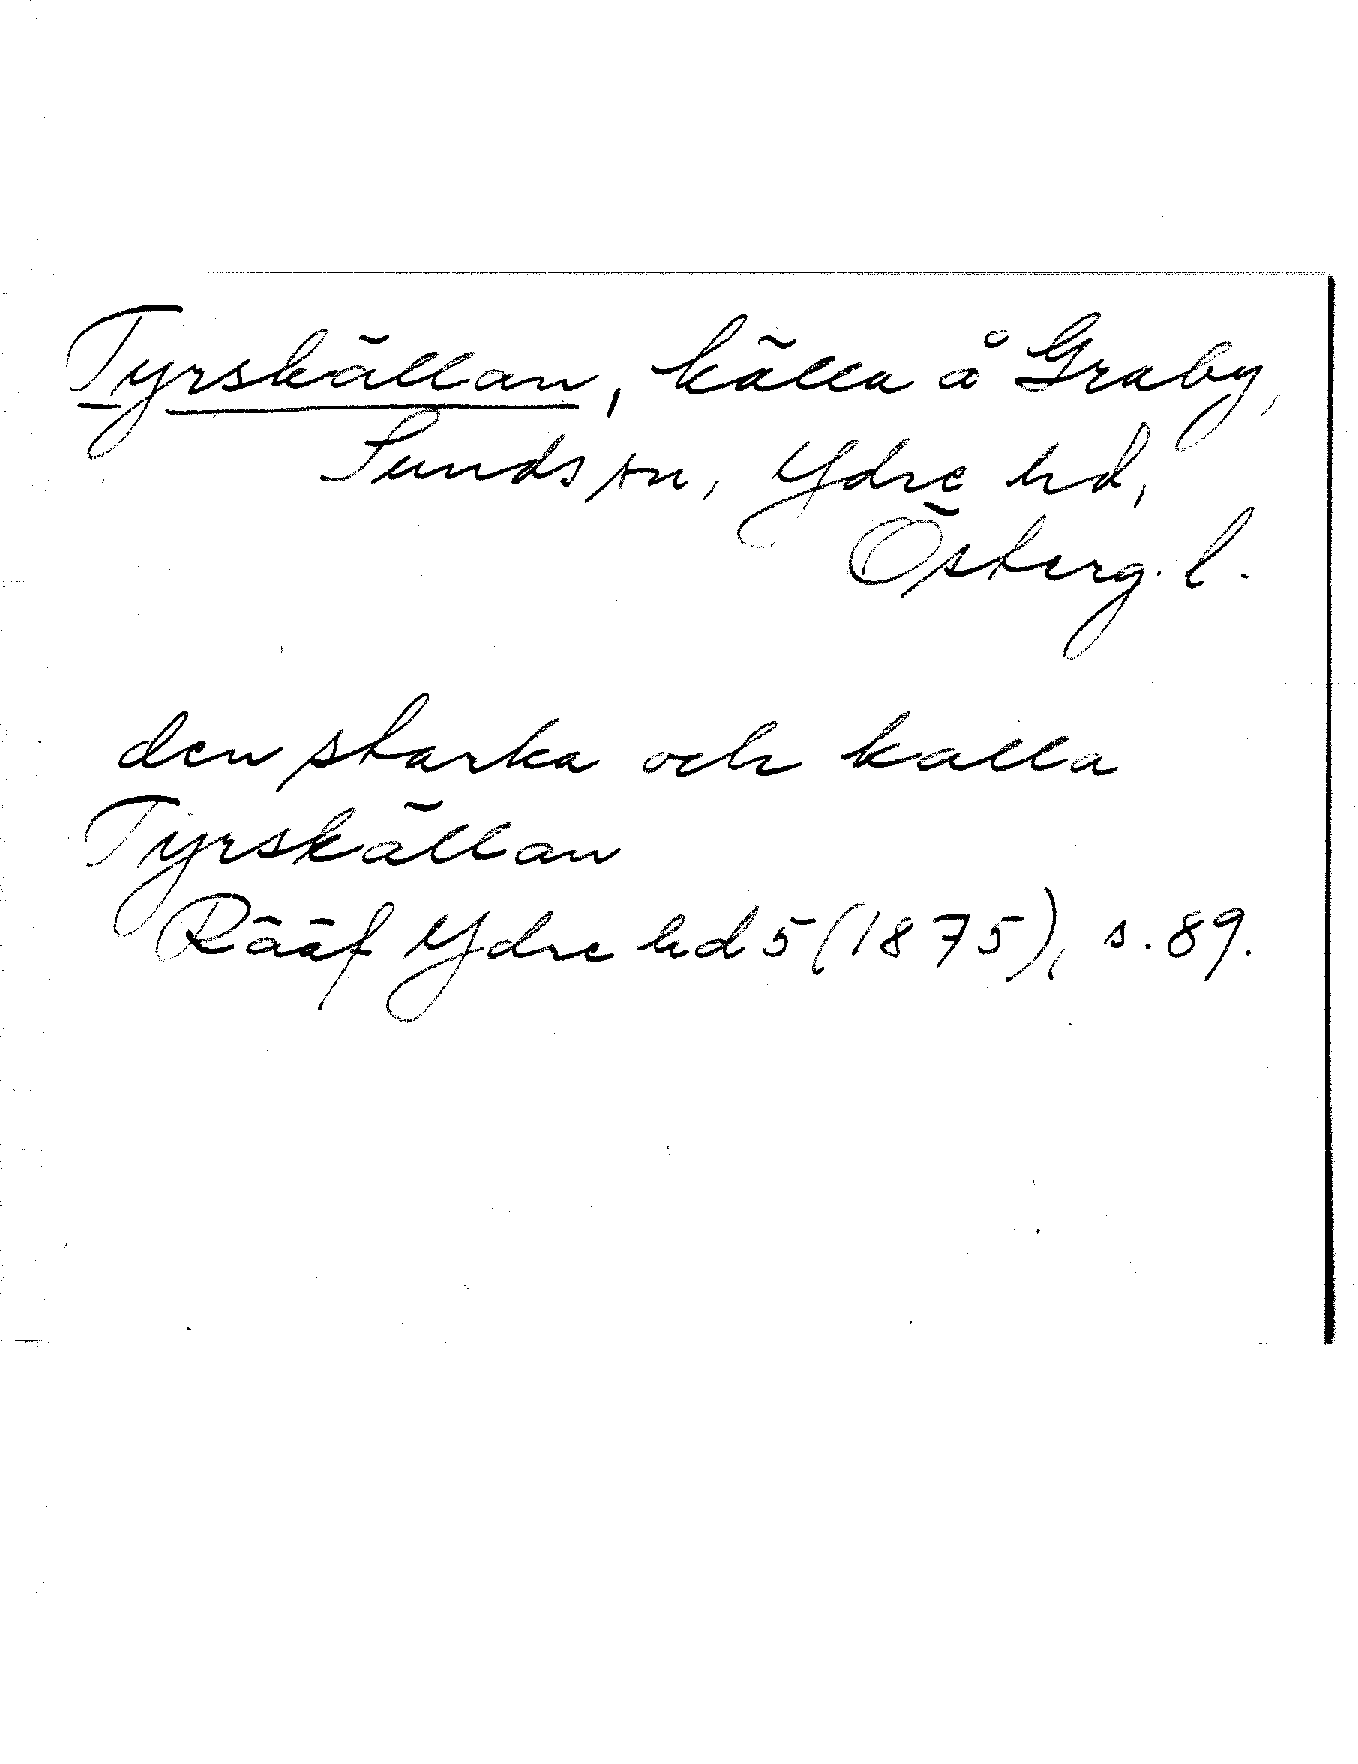 Tyrskällan, källa å Graby,
Sunds sn, Ydre hd,
Österg. l.
den starka och kalla
Tyrskällan
Rääf Ydre hd 5 (1875), s. 89.